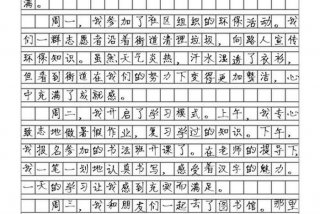 满。
周一，我参加了社区组织的环保活动。我
们一群志愿者沿着街道清理垃圾，向路人宣传
环保知识。虽然天气炎热，汗水湿透了衣衫，
但看到街道在我们的努力下变得更加整洁，心
中充满了成就感。
周二，我开启了学习模式。上午，我专心
致志地做暑假作业，复习学过的知识。下午，
我报名参加的书法班开课了。在老师的指导下，
我一笔一划地认真书写，感受汉字的魅力。
一天的学习让我感到充实而满足。
周三，我和朋友们一起去了图书馆。那里